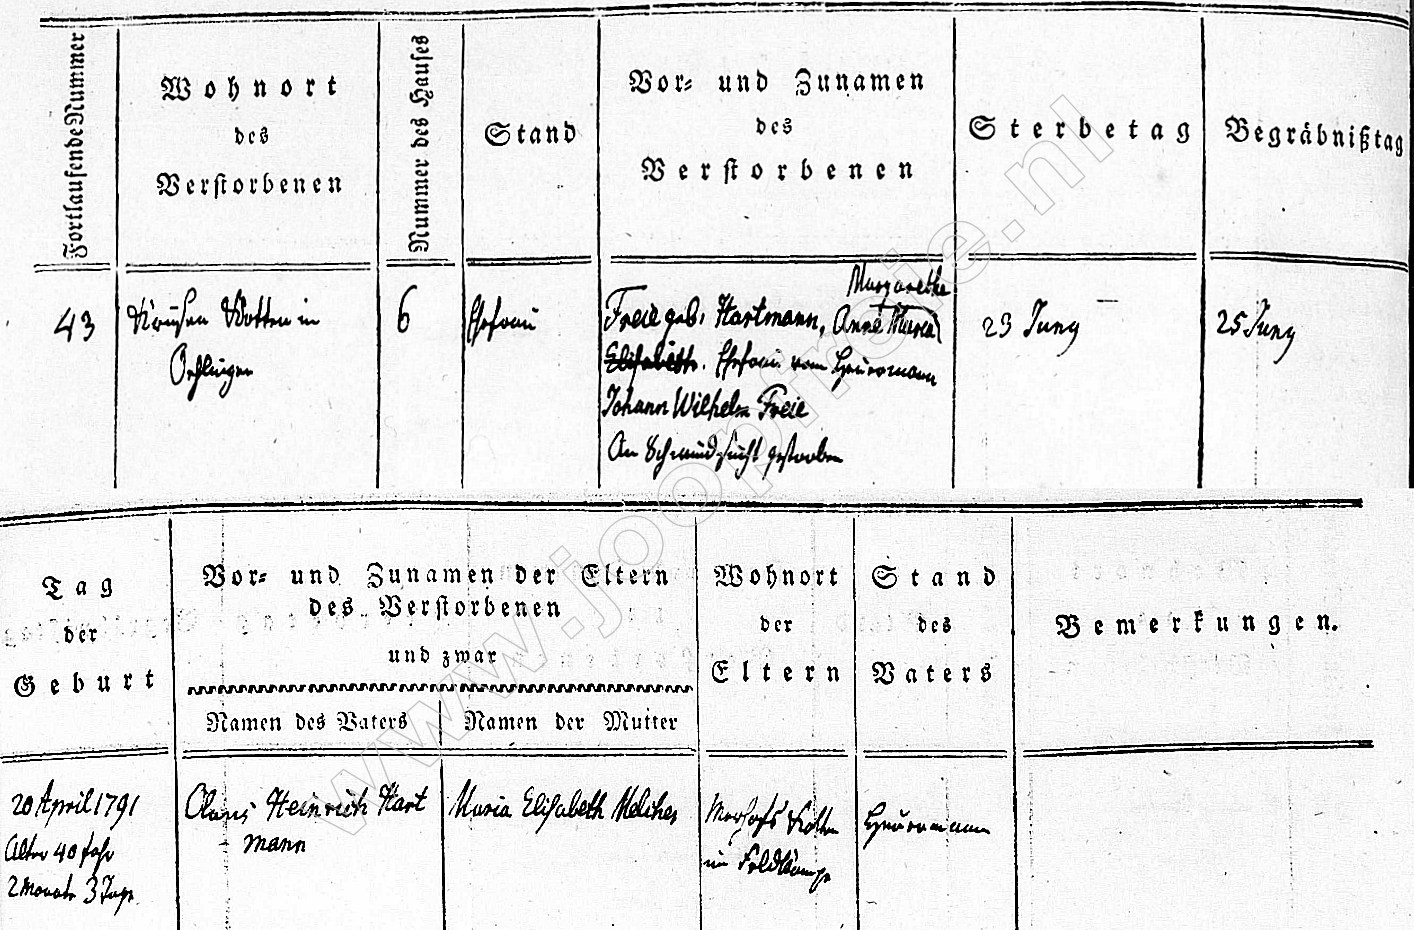 Fortlaufende Nummer
Wohnort
des
Verstorbenen
Nummer des Hauses
Stand
Vor- und Zunamen
des
Verstorbenen
Sterbetag
Begräbnißtag
43
Kotten in
Oehlingen
6
Ehefrau
Margarethe
Freie geb. Hartmann, Anne Maria
Elisabeth. Ehefrau vom Heuermann
Johann Wilhelm Freie
An Schwindsucht gestorben
23 Juny
25 Juny
Tag
der
Geburt
Vor- und Zunamen der Eltern
des Verstorbenen
und zwar
Namen des Vaters
Namen der Mutter
Wohnort
der
Eltern
Stand
des
Vaters
Bemerkungen.
20 April 1791
Alter 40 Jahr
2 Monate 3 Tage
Heinrich Hart
mann
Maria Elisabeth Melcher
Kotten
im Feldkampe
Heuermann
www.joopfreie.nl